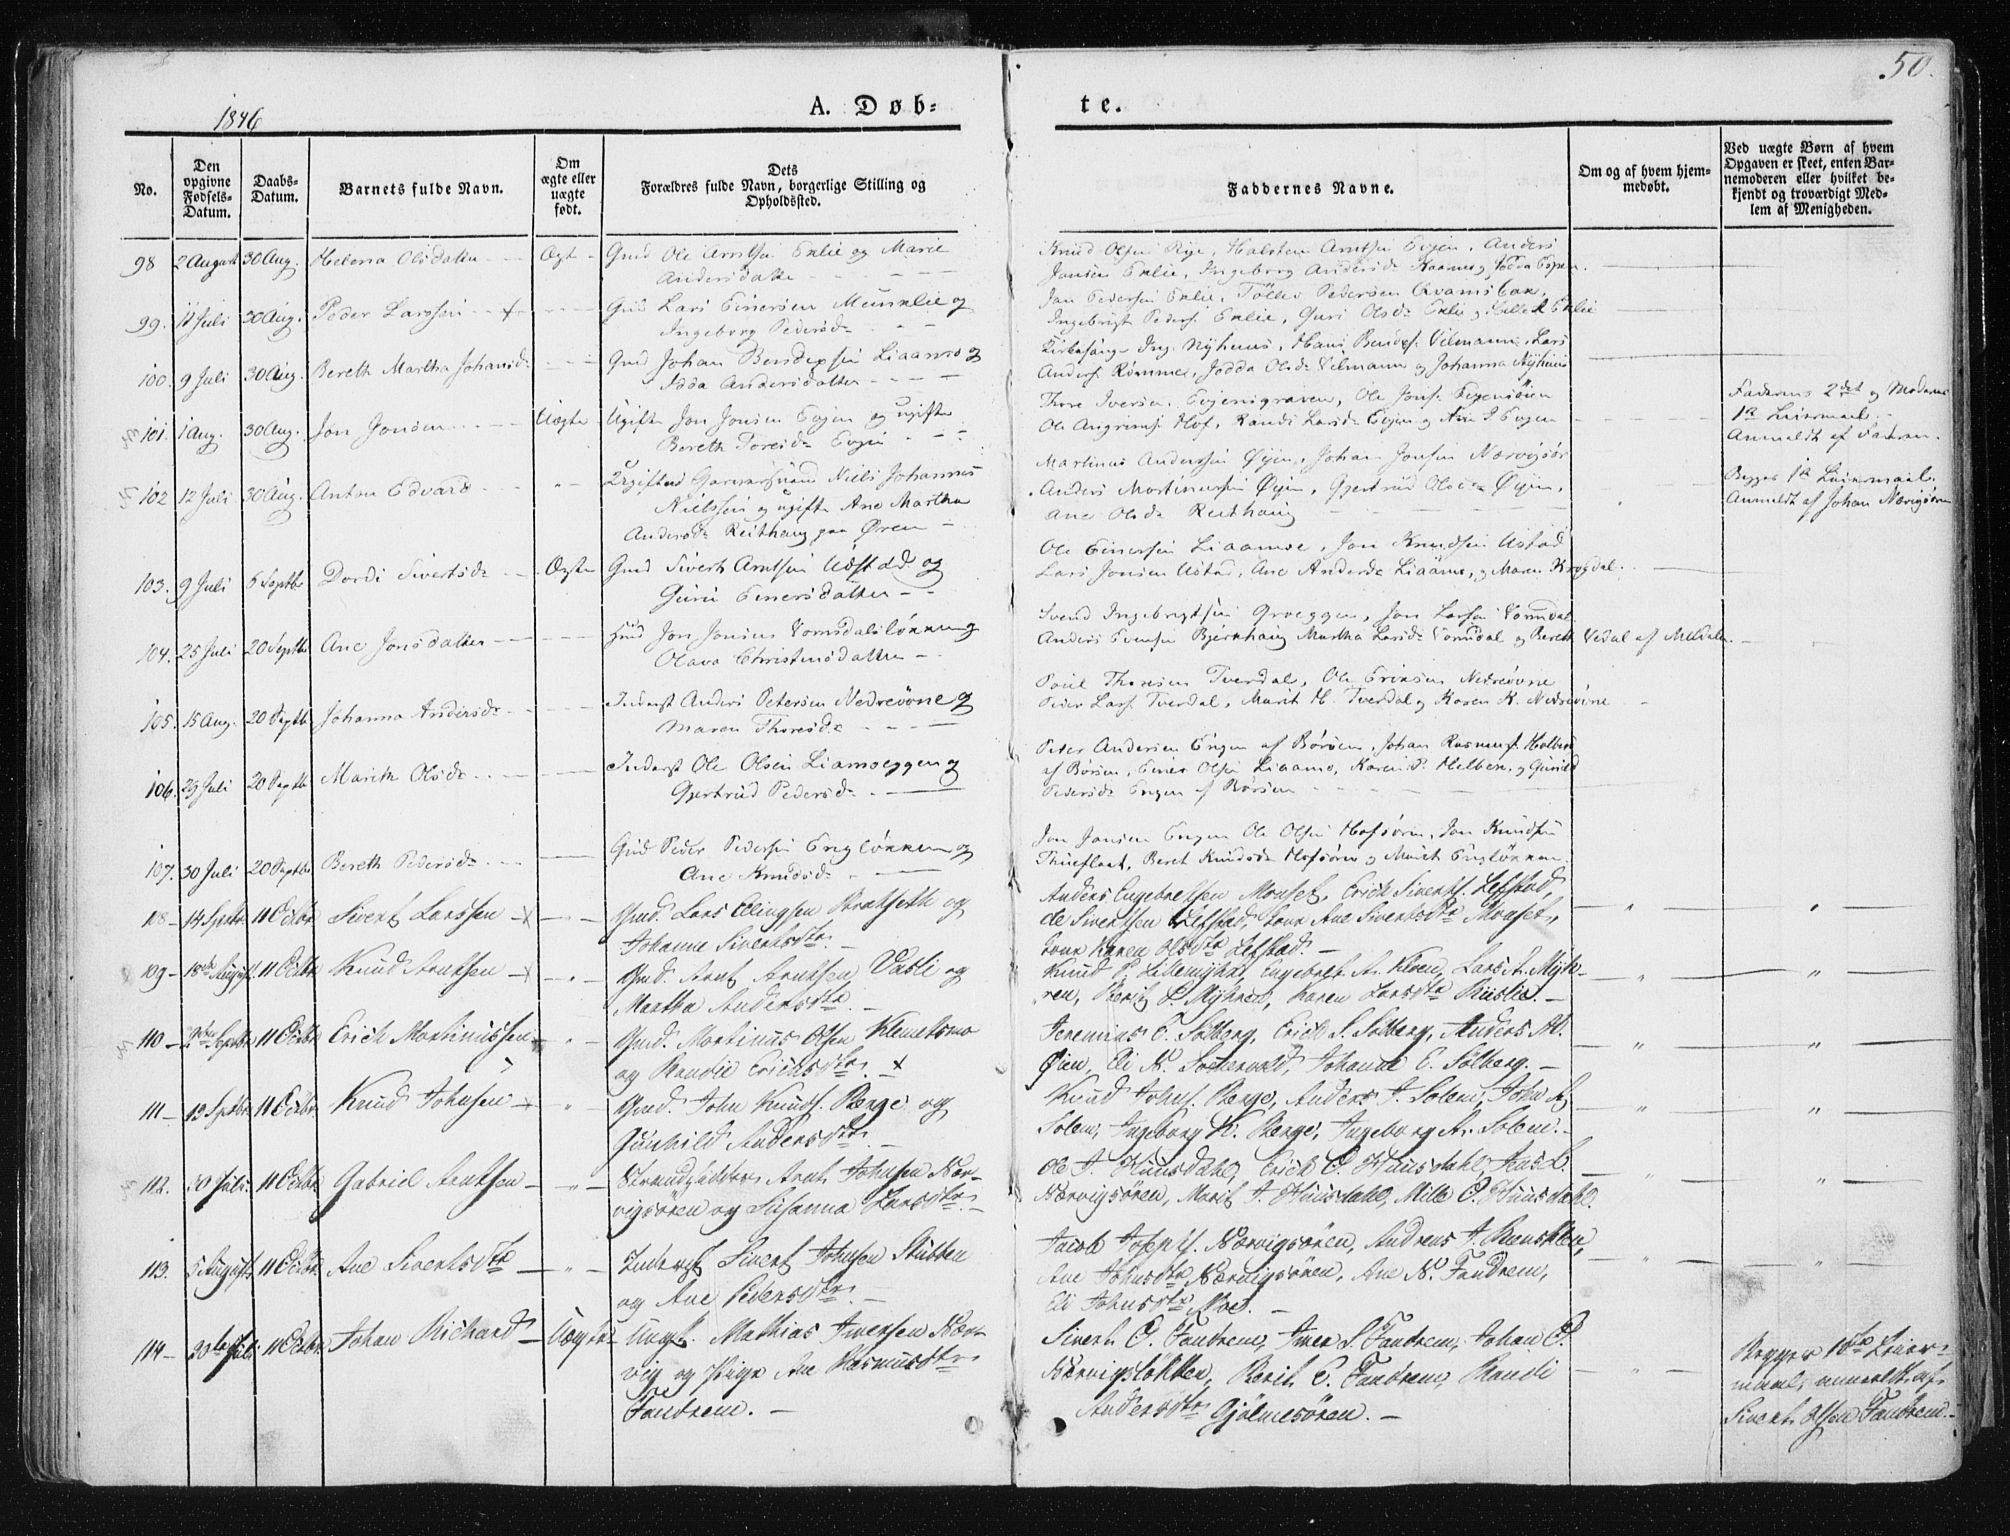 50.
1846
A. Døb-
te.
No.
Den opgivne Fødsels-Datum.
Daabs-Datum.
Barnets fulde Navn.
Om ægte eller uægte født.
Dets Forældres fulde Navn, borgerlige Stilling og Opholdssted.
Faddernes Navne.
Om og af hvem hjemmedøbt.
Ved uægte Børn af hvem Opgaven er skeet, enten Barnemoderen eller hvilket bekjendt og troværdigt Medlem af Menigheden.
98 2 August 30 Aug. Helena Olsdatter Ægt Gmd Ole Arntsen Enlie og Marie
Andersdatter
Knud Olsen Rige, Halsten Arntsen Evjen, Anders
Jonsen Enlie, Ingeborg Andersd.
99. 11 Juli 30 Aug. Peder Larssen Gmd Lars Einersen Munklie og
Ingeborg Pedersd.
Jon Pedersen Enlie, Tollev Pedersen Qvamsbak,
Ingebrigt Peders. Enlie, Guri Olsd. Enlie
100. 9 Juli 30 Aug. Bereth Martha Johansd. Gmd Johan Bendixsen Liaamo og
Andersdatter
Kirkesanger Ing. Nyhuus, Hans Bendix. Vilmann, Lars
Anders. Rømme, Olsd. Vilmann og Johanna Nyhuus
101. 1 Aug. 30 Aug. Jon Jonsen Uægte Ugifte Jon Jonsen Evjen og ugifte
Bereth Toresd. Evjen
Thore Iversen Evjensgraven, Ole Jons. Evjensøien
Ole Angrims. Hof, Randi Larsd. Evjen
Faderens 2det og Moderens
1te Leiermaal.
Anmeldt af Faderen.
102 12 Juli 30 Aug. Anton Edvard Niels Johannes
Nielssen og ugifte Ane Martha
Andersd. Reithaug paa Øren
Martinus Anderssen Øyen, Johan Jonsen Nærvigsør
Anders Martinussen Øyen, Gjertrud Olsd. Øyen,
Ane Olsd. Reithaug
Begges 1te Leiermaal.
Anmeldt af Johan Nærvigsøren
103. 9 Juli 6 Septbr Dordi Sivertsd. Ægte Gmd Sivert Arntsen Udstad og
Guru Einersdatter
Ole Einersen Liaamoe, Jon Knudsen Ustad
Lars Jonsen Ustad, Ane Andersd. Liaamo, og Maren Krogdal.
104. 25 Juli 20 Septbr Ane Jonsdatter Jon Jonsen Vormdalsløkken og
Olava Christensdatter
Svend Ingebrigtsen Groeggen, Jon Larsen Vormdal
Anders Evensen Bjerkhaug Martha Larsd. Vormdal og Bereth Vedal af Meldalen
105. 15 Aug. 20 Septbr Johanna Andersd. Inderst Anders Petersen Nedreøvne og
Maren Thoresd.
Poul Thoresen Tverdal, Ole Eriksen Nedreøvne
Peder Lars. Tverdal, Marit H. Tverdal og Karen K. Nedreøvne
106. 29 Juli 20 Septbr Marith Olsd. Inderst Ole Olsen Liamoeggen og
Gjertrud Pedersd.
Peter Andersen Engen af Børsen, Johan Rasmus. Holberg
af Børsen, Einer Olsen Liaamo, Karen P. og Gunild
Pedersd. Engen af Børsen
107. 30 Juli 20 Septbr Bereth Pedersd. Gmd Peder Pedersen Engløkken og
Ane Knudsd.
Jon Jonsen Engen Ole Olsen Hofsøren, Jon Knudsen
Beret Knudsd. Hofsøren og Marit Engløkken
108 14 Septbr. 11 Octbr Sivert Larssen Gmd. Lars Ellingsen Bratseth og
Johanne Sivertsdtr.
Anders Engebretsen Monset, Erich Siverts. Lefstad,
Ole Sivertsen Lefstad, Ane Sivertsdtr Monset,
Karen Olsdtr Lefstad.
109 18de August 11 Octbr Knud Arntsen Gmd. Arnt Arntsen Vasli og
Martha Andersdtr.
Engebret A. Kleven, Lars A. Myh-
ren, Berit L. Myhren, Karen Larsdtr
110 2den Septbr 11 Octbr Erich Martinussen Gmd. Martinus Olsen Klemetsmo
og Randie Erichsdtr.
Jeremias E. Solberg, Erich S. Solberg, Anders M.
Øien, Eli N. Johanne E. Solberg.
111 13 Septbr 11 Octbr Knud Johnsen Gmd. John Knuds. Berge og
Gunhild Andersdtr.
Knud Johns. Berge, Anders J. Solem, John A.
Solem, Ingeborg K. Berge, Ingeborg A. Solem.
112. 30 Juli 11 Octbr Gabriel Arntsen Strandsidder Arnt Johnsen Nær-
vigsøren og Susanna Larsdtr.
Ole J. Huusdahl, Erich O. Huusdahl, Jens L.
Nærvigsøren, Marit J. Huusdahl, Mille O. Huusdahl.
113. 5 August 11 Octbr Ane Sivertsdtr Inderst Sivert Johnsen Stubben
og Ane Pedersdtr.
Jacob Joseph. Nærvigsøren, Andreas J.
Ane Johnsdtr Nærvigsøren, Ane N. Fandrem,
Eli Johnsdtr Moe.
114 20de Juli 11 Octbr Johan Richard Uægte Ungk. Mathias Iversen Nær-
vig og Pige Ane Rasmusdtr
Fandrem.
Sivert O. Fandrem, Iver S. Fandrem, Johan P.
Nærvigsløkken, Berit E. Fandrem, Randi
Andersdtr Gjølmesøren.
Begges 1ste Leier-
maal, anmeldt af
Sivert Olsen Fandrem.